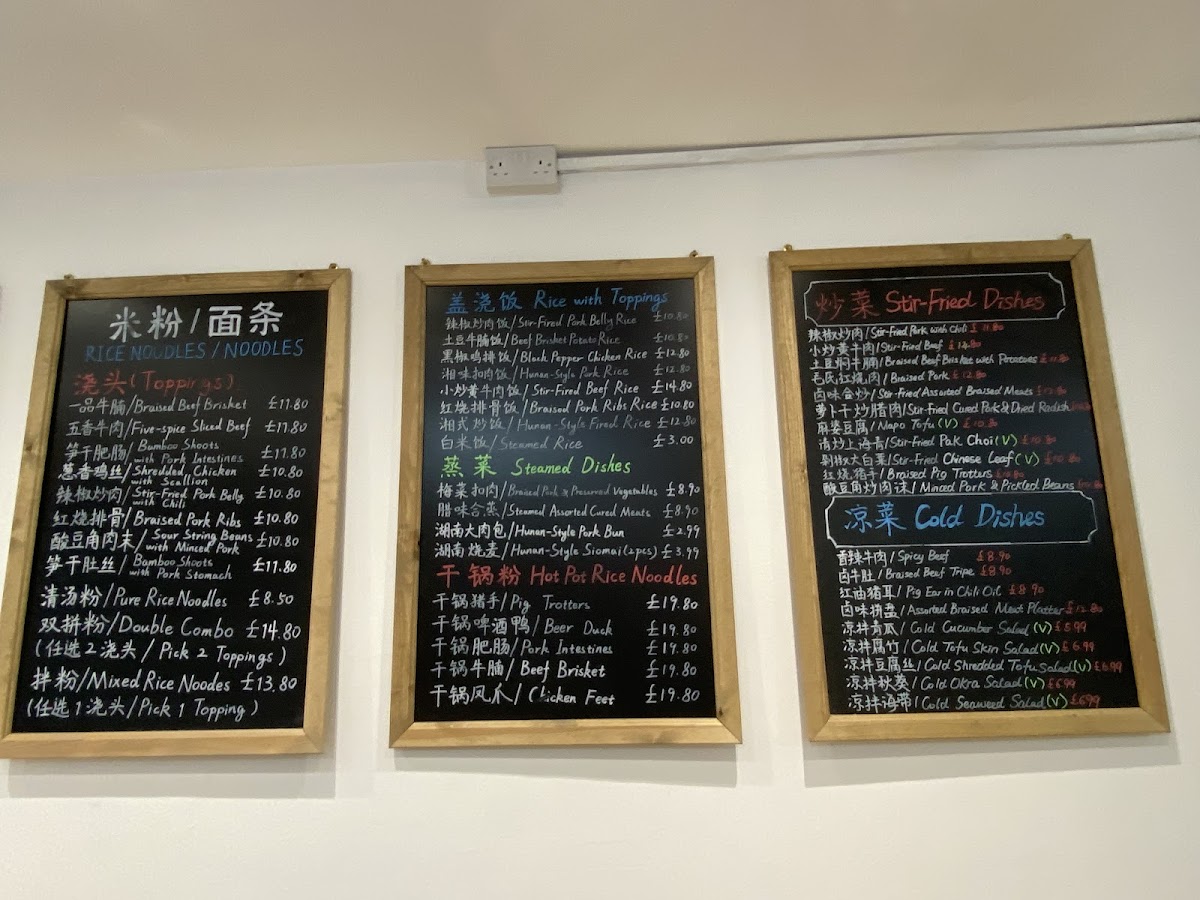 米粉/面条
RICE NOODLES/NOODLES
浇头(Toppings)
一品牛腩/Braised Beef Brisket £11.80
五香牛肉/Five-spice Sliced Beef £11.80
笋干肥肠/Bamboo Shoots with Pork Intestines £11.80
葱香鸡丝/Shredded Chicken with Scallion £10.80
辣椒炒肉/Stir-Fried Pork Belly with Chili £10.80
红烧排骨/Braised Pork Ribs £10.80
酸豆角肉末/Sour String Beans with Minced Pork £10.80
笋干肚丝/Bamboo Shoots with Pork Stomach £11.80
清汤粉/Pure Rice Noodles £8.50
双拼粉/Double Combo £14.80
(任选2浇头/Pick 2 Toppings)
拌粉/Mixed Rice Noodes £13.80
(任选1浇头/Pick 1 Topping)
盖浇饭 Rice with Toppings
辣椒炒肉饭/Stir-Fired Pork Belly Rice £10.80
土豆牛腩饭/Beef Brisket Potato Rice £10.80
黑椒鸡排饭/Black Pepper Chicken Rice £12.80
湘味扣肉饭/Hunan-Style Pork Rice £12.80
小炒黄牛肉饭/Stir-Fired Beef Rice £14.80
红烧排骨饭/Braised Pork Ribs Rice £10.80
湘式炒饭/Hunan-Style Fired Rice £12.80
白米饭/Steamed Rice £3.00
蒸菜 Steamed Dishes
梅菜扣肉/Braised Pork & Preserved Vegetables £8.90
腊味合蒸/Steamed Assorted Cured Meats £8.90
湖南大肉包/Hunan-Style Pork Bun £2.99
湖南烧麦/Hunan-Style Siomai(2pcs) £3.99
干锅粉 Hot Pot Rice Noodles
干锅猪手/Pig Trotters £19.80
干锅啤酒鸭/Beer Duck £19.80
干锅肥肠/Pork Intestines £19.80
干锅牛腩/Beef Brisket £19.80
干锅凤爪/Chicken Feet £19.80
炒菜 Stir-Fried Dishes
辣椒炒肉/Stir-Fried Pork with Chili £11.80
小炒黄牛肉/Stir-Fried Beef £14.80
土豆焖牛腩/Braised Beef Brisket with Potatoes £11.80
毛氏红烧肉/Braised Pork £12.80
卤味合炒/Stir-Fried Assorted Braised Meats
萝卜干炒腊肉/Stir-Fried Cured Pork & Dried Radish
麻婆豆腐/Mapo Tofu(V) £10.80
清炒上海青/Stir-Fried Pak Choi(V) £10.80
剁椒大白菜/Stir-Fried Chinese Leaf(V) £10.80
红烧猪手/Braised Pig Trotters £10.80
酸豆角炒肉沫/Minced Pork & Pickled Beans
凉菜 Cold Dishes
香辣牛肉/Spicy Beef £8.90
卤牛肚/Braised Beef Tripe £8.90
红油猪耳/Pig Ear in Chili Oil £8.90
卤味拼盘/Assorted Braised Meat Platter £12.80
凉拌青瓜/Cold Cucumber Salad(V) £5.99
凉拌腐竹/Cold Tofu Skin Salad(V) £6.99
凉拌豆腐丝/Cold Shredded Tofu Salad(V) £6.99
凉拌秋葵/Cold Okra Salad(V) £6.99
凉拌海带/Cold Seaweed Salad(V) £6.99